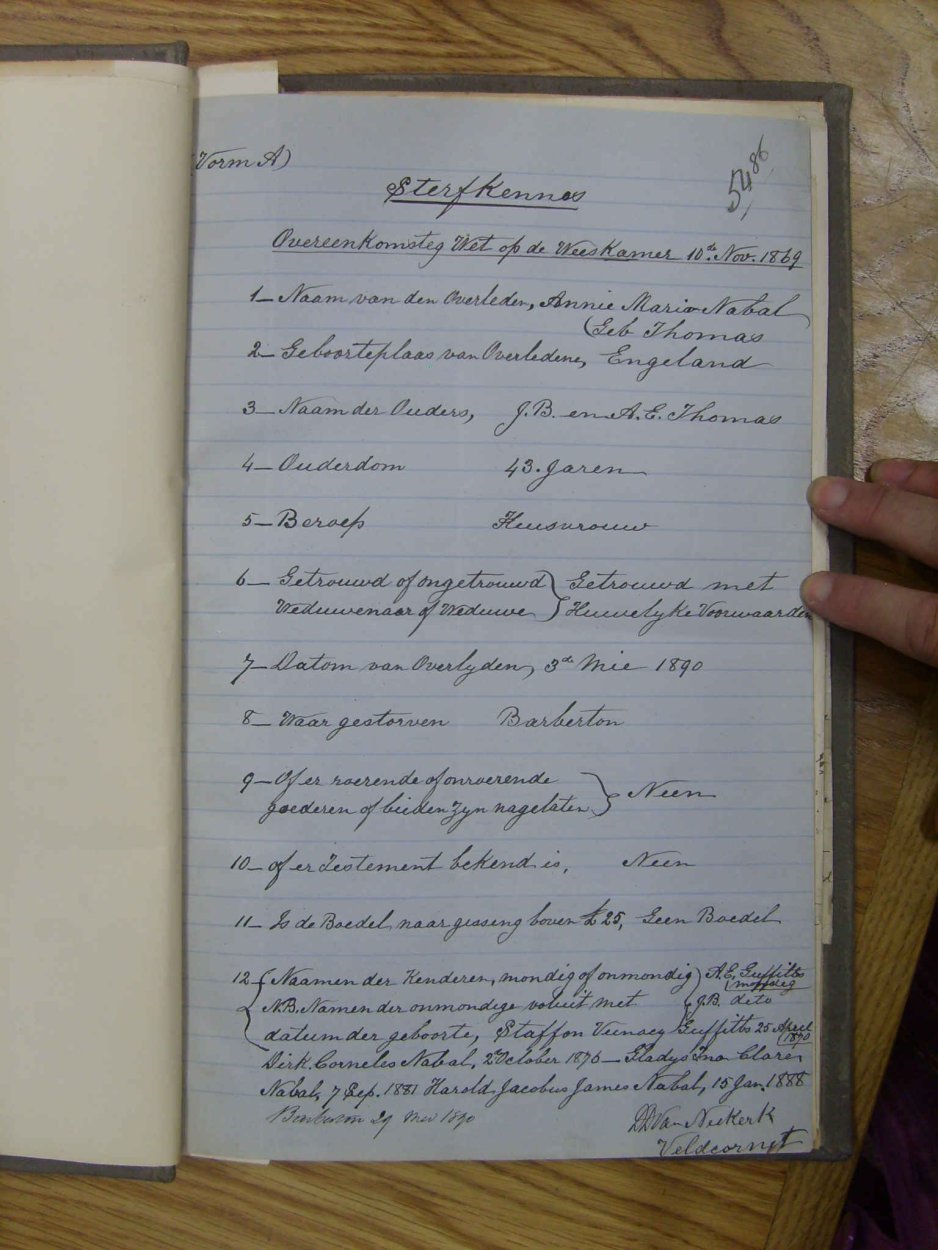 (Vorm A)
5486
Sterfkennes
Overeenkomsteg Wet op de Weeskamer 10de Nov. 1869
1– Naam van den Overleden, Annie Maria Nabal
(Geb Thomas
2– Geboorteplaas van Overledene, Engeland
3– Naam der Ouders, J.B. en A.E. Thomas
4– Ouderdom 43. Jaren
5– Beroep Huusvrouw
6– Getrouwd of ongetrouwd } Getrouwd met
Weduwenaar of Weduwe } Huwelyke Voorwaarden
7– Datom van Overlyden, 3de Mie 1890
8– Waar gestorven Barberton
9– Of er roerende of onroerende
goederen of bieden zyn nagelaten } Neen
10– of er Testement bekend is, Neen
11– Is de Boedel naar gissing boven £25, Geen Boedel
12 { Naamen der Kenderen, mondig of onmondig } A.E. Guffitts
(mondig
N.B. Namen der onmondige voluit met } J.B. deto
datum der geboorte, Guffitts 25 April
(1870
Dirk Corneles Nabal, 2d October 1876 – Gladys Ina Clare
Nabal, 7 Sep. 1881 Harold Jacobus James Nabal, 15 Jan. 1888
Barberton 29 Mei 1890
Van Niekerk
Veldcornet